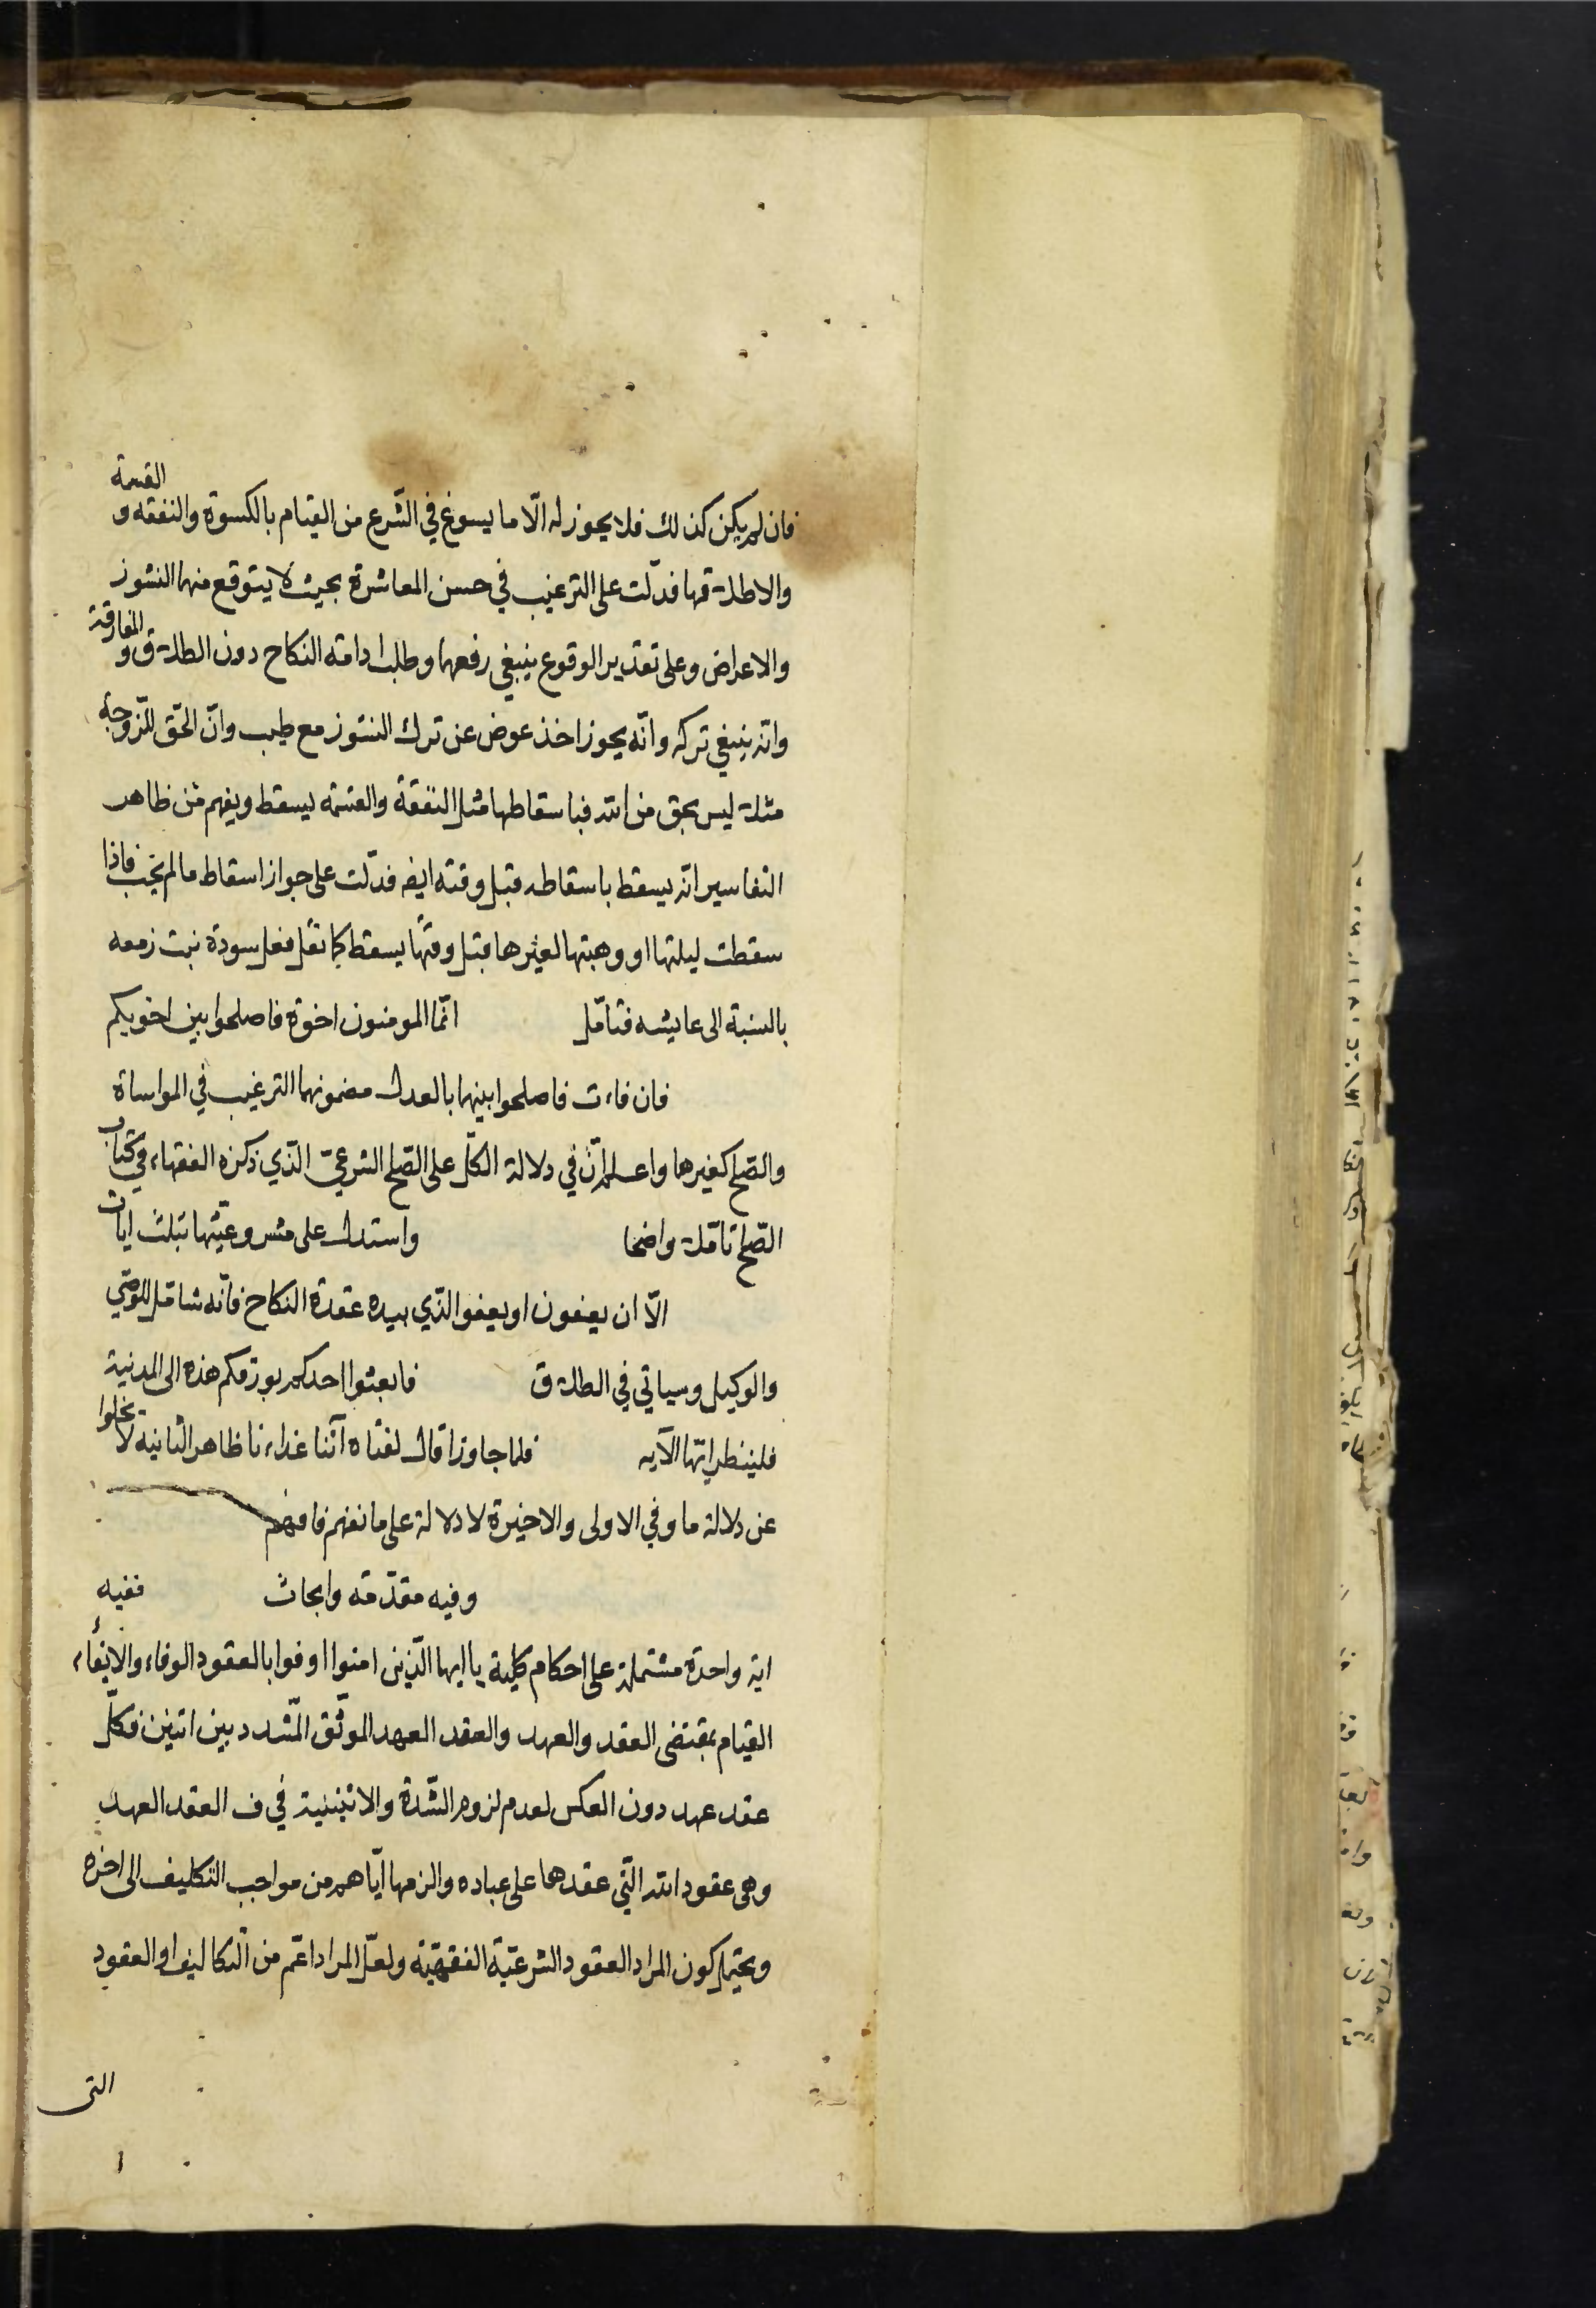 فان لم يكن كذلك فلا يجوز له الّا ما يسوغ في الشّرع من القيام بالكسوة والنفقه و القسمة
والاطلاقها فدلّت على الترغيب في حسن المعاشرة بحيث لا يتوقع منهما النشوز
والاعراض وعلى تقدير الوقوع ينبغي رفعهما وطلب ادامته النكاح دون الطلاق و المفارقة
وانه ينبغي تركه وانّه يجوز اخذ عوض عن ترك النشوز مع طيب وانّ الحّق للزّوجة
مثلا ليس بحق من الله فباسقاطها مثل النفقة والقسمة يسقط ويفهم من ظاهر
التفاسير انه يسقط باسقاطه قبل وقته ايضه فدلّت على جواز اسقاط ما لم يجب فاذا
سقطت ليلتها او وهبتها لغيرها قبل وقتها يسقط كما نقل فعل سودة بنت زمعه
بالنسبة الى عايشه فتامّل انّما المومنون اخوة فاصلحوا بين اخويكم
فان فاءت فاصلحوا بينهما بالعدل مضمونهما الترغيب في المواساة
والصّلح كغيرها واعلم انّ في دلالة الكلّ على الصّلح الشرعيّ الّذي ذكره الفقهاء في كتاب
الصّلح تامّلا واضحا واستدل على مشروعيّتها بثلث ايات
الّا ان يعفون او يعفوا الّذي بيده عقدة النكاح فانّه شامل للوصّي
والوكيل وسياتي في الطلاق فابعثوا احدكم بورقكم هذه الى المدنية
فلينظر ايّها الآيه فلما جاوزا قال لفتاه آتنا غداءنا ظاهر الثانيه لا يخلوا
عن دلالة ما وفي الاولى والاخيرة لا دلالة على ما نفهم فافهم
وفيه مقدّمه وابحاث ففيه
اية واحدة مشتملة على احكام كلية يا ايها الّذين امنوا اوفوا بالعقود الوفاء والايفاء
القيام بمقتضى العقد والعهد والعقد العهد الموثّق المّشدد بين اثنين فكلّ
عقد عهد دون العكس لعدم لزوم الشّدة والاثنينية في ف العقد العهد
وهى عقود الله الّتي عقدها على عباده والزمها ايّاهم من مواجب التكليف الى اخره
ويحتمل كون المراد العقود الشرعيّة الفقهيّة ولعلّ المراد اعّم من التكاليف او العقود
التى